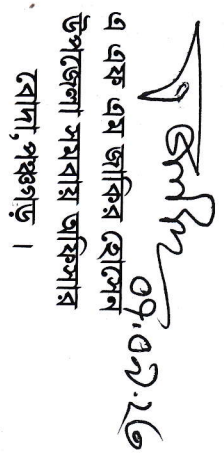 এ এফ এম জাকির হোসেন
উপজেলা সমবায় অফিসার
বোদা, পঞ্চগড় ।